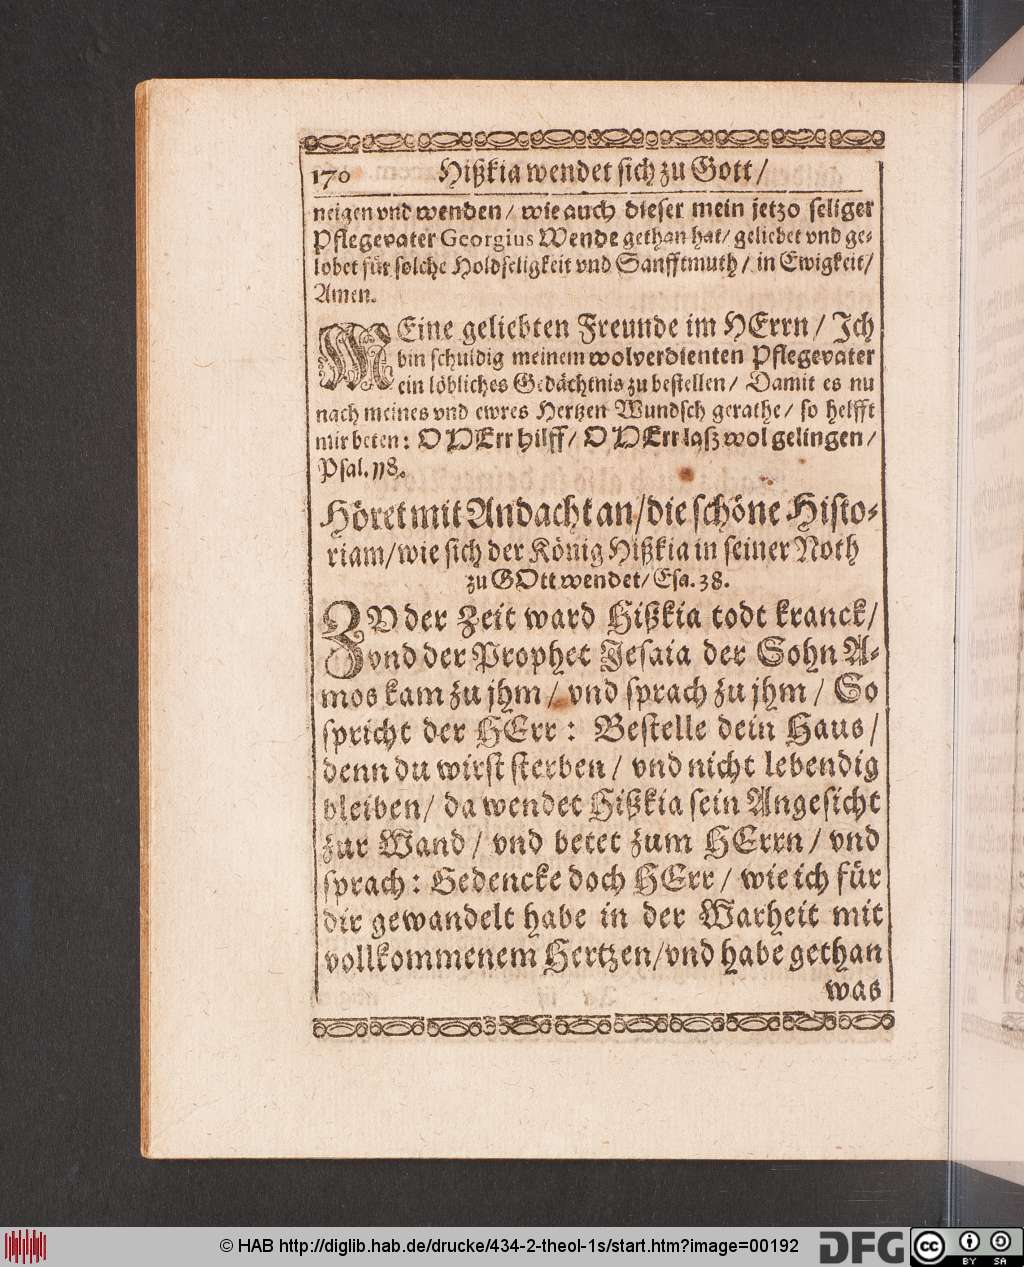 170 Hißkia wendet sich zu Gott /
neigen vnd wenden / wie auch dieser mein jetzo seliger
Pflegevater Georgius Wende gethan hat / geliebet vnd ge-
lobet für solche Holdseligkeit vnd Sanfftmuth / in Ewigkeit /
Amen.
MEine geliebten Freunde im HErrn / Ich
bin schuldig meinem wolverdienten Pflegevater
ein löbliches Gedächtnis zu bestellen / Damit es nu
nach meines vnd ewres Hertzen Wundsch gerathe / so helfft
mir beten: O HErr hilff / O HErr laß wol gelingen /
Psal. 118.
Höret mit Andacht an / die schöne Histo-
riam / wie sich der König Hißkia in seiner Noth
zu GOtt wendet / Esa. 38.
ZV der Zeit ward Hißkia todt kranck /
vnd der Prophet Jesaia der Sohn A-
mos kam zu jhm / vnd sprach zu jhm / So
spricht der HErr: Bestelle dein Haus /
denn du wirst sterben / vnd nicht lebendig
bleiben / da wendet Hißkia sein Angesicht
zur Wand / vnd betet zum HErrn / vnd
sprach: Gedencke doch HErr / wie ich für
dir gewandelt habe in der Warheit mit
vollkommenem Hertzen / vnd habe gethan
was
© HAB http://diglib.hab.de/drucke/434-2-theol-1s/start.htm?image=00192
DFG
cc BY SA